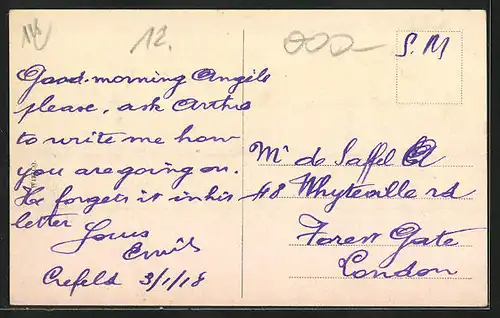 12.
S. M
Good-morning Angèle
please, ask Arthur
to write me how
you are going on.
He forgets it in his
letter
Yours
Emile
Crefeld 3/1/18
Mr de Saffel A
48 Whyteville rd
Forest Gate
London